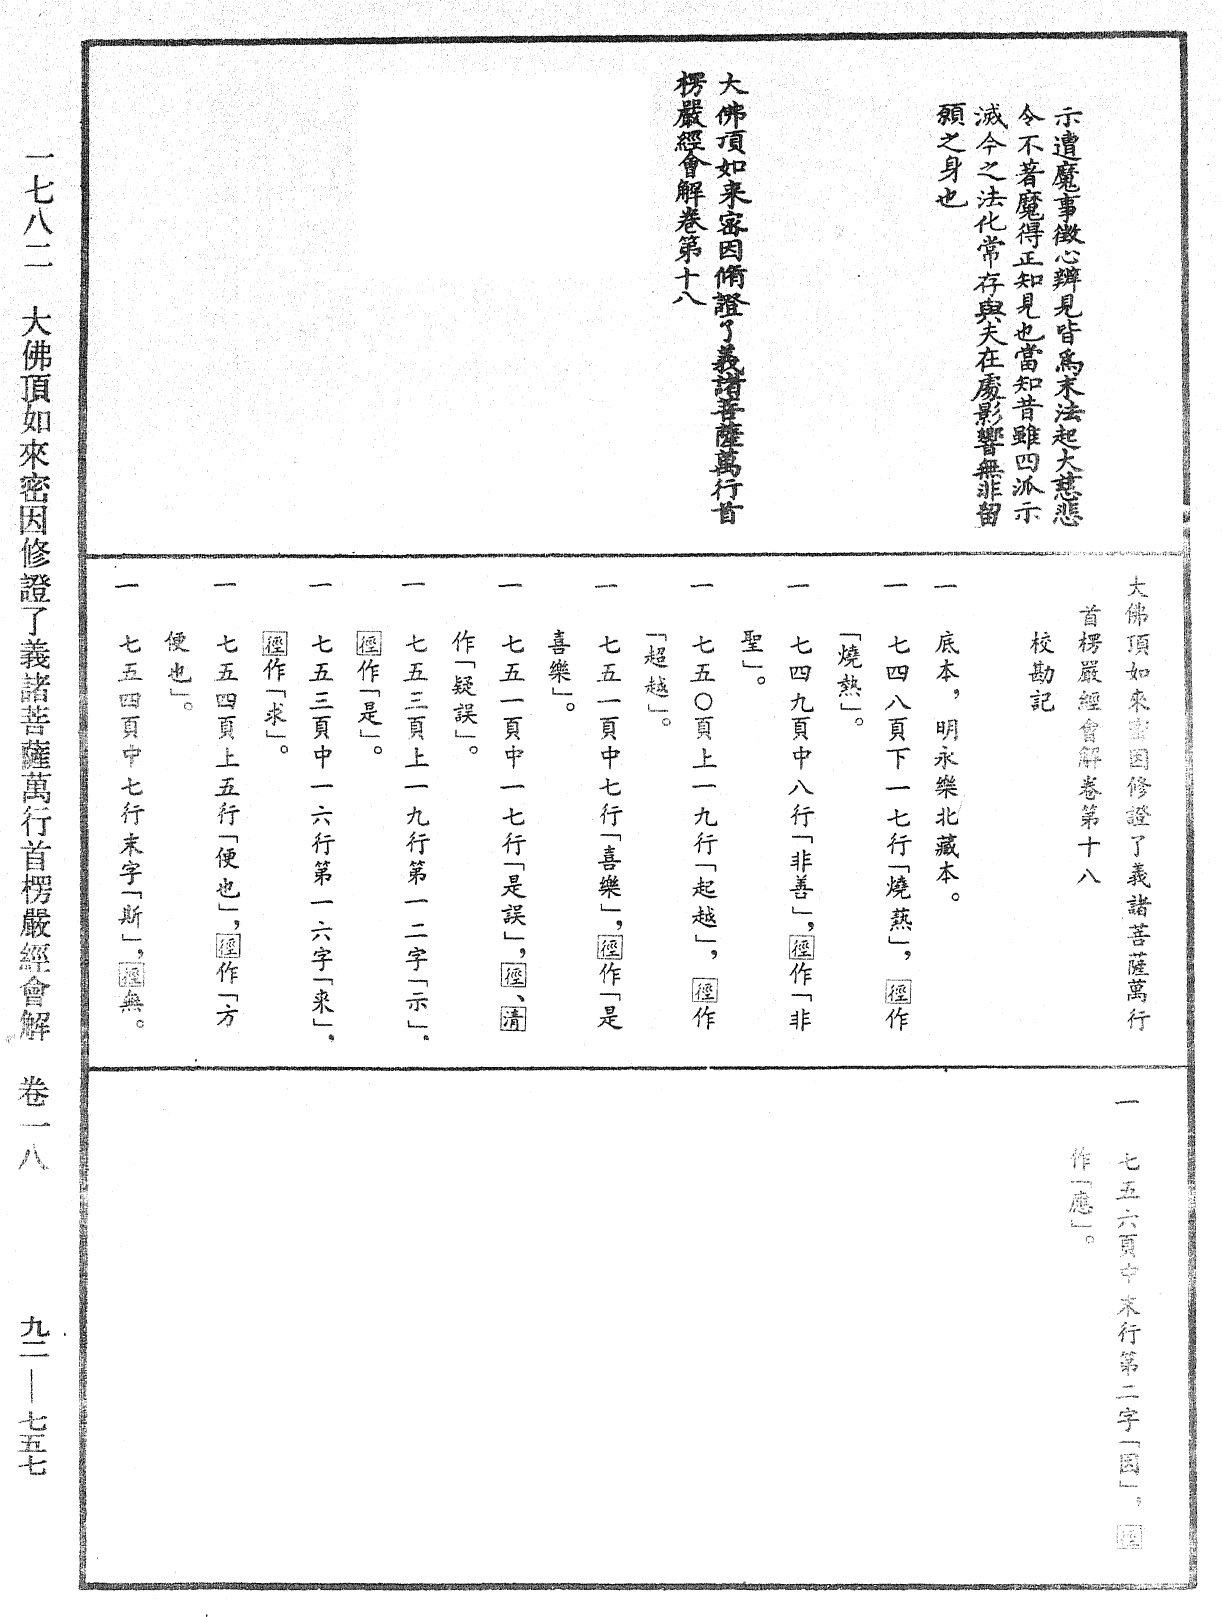 示遭魔事徵心辨見皆爲末法起大慈悲
令不著魔得正知見也當知昔雖四派示
滅今之法化常存與夫在處影響無非留
願之身也
大佛頂如来密因脩證了義諸菩薩萬行首
楞嚴經會解卷第十八
大佛頂如来密因修證了義諸菩薩萬行
首楞嚴經會解卷第十八
校勘記
一 底本，明永樂北藏本。
一 七四八頁下一七行「燒爇」，徑作
「燒熱」。
一 七四九頁中八行「非善」，徑作「非
聖」。
一 七五〇頁上一九行「起越」，徑作
「超越」。
一 七五一頁中七行「喜樂」，徑作「是
喜樂」。
一 七五一頁中一七行「是誤」，徑、清
作「疑誤」。
一 七五三頁上一九行第一二字「示」，
徑作「是」。
一 七五三頁中一六行第一六字「来」，
徑作「求」。
一 七五四頁上五行「便也」，徑作「方
便也」。
一 七五四頁中七行末字「斯」，徑無。
一 七五六頁中末行第二字「因」，徑
作「應」。
一七八二 大佛頂如來密因修證了義諸菩薩萬行首楞嚴經會解 卷一八 九二—七五七